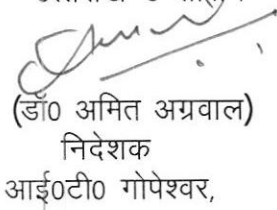 (डॉ0 अमित अग्रवाल)
निदेशक
आई0टी0 गोपेश्वर,